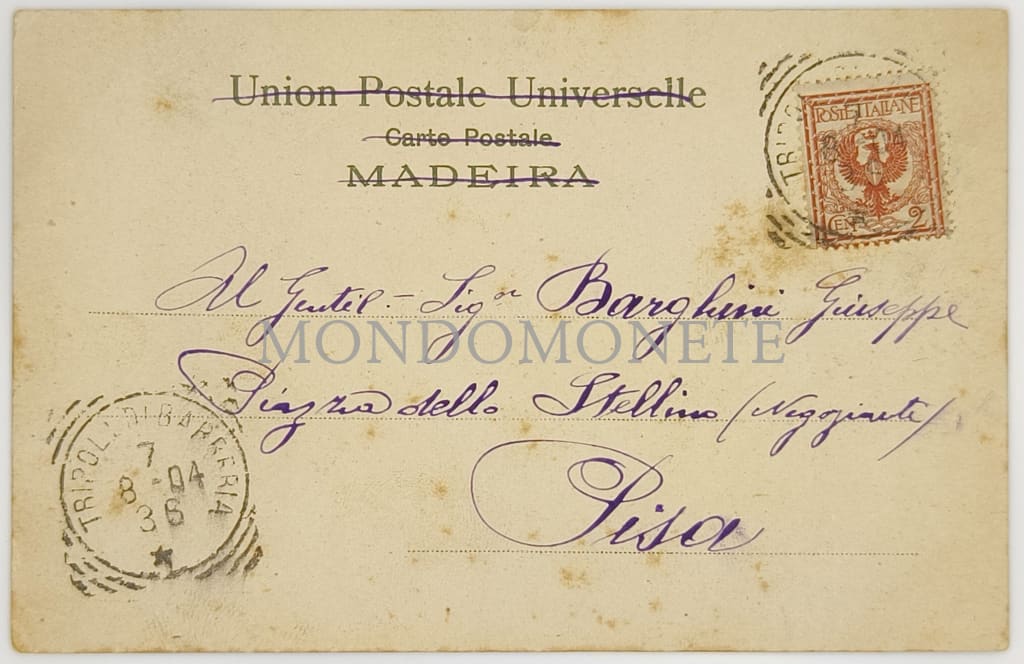 Union Postale Universelle
Carte Postale
MADEIRA
TRIPO
8 04
POSTE ITALIANE
CEN 2
Al Gentil.- Sigor Barghini Giuseppe
MONDOMONETE
Piazza dello Stellino (Negoziante)
Pisa
TRIPOLI DI BARBERIA
7
8 -04
3 6